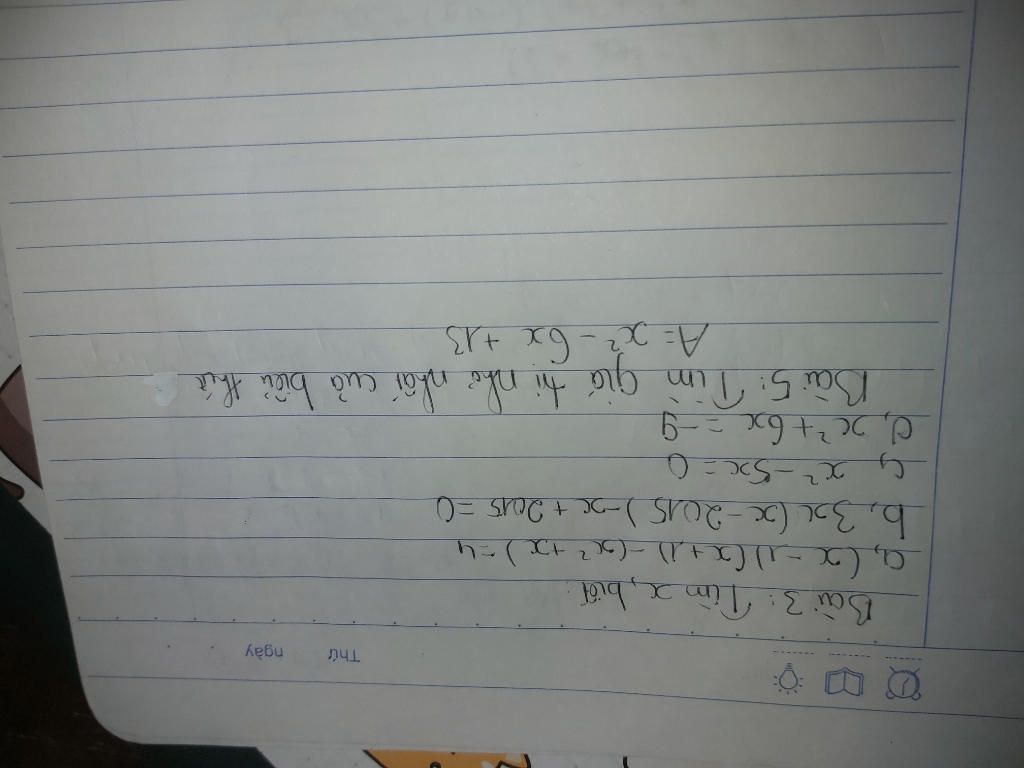 Thứ ngày
Bài 3: Tìm x, biết:
a, (x - 1)(x + 1) - (x² + x) = 4
b, 3x(x - 2015) - x + 2015 = 0
c, x² - 5x = 0
d, x² + 6x = -9
Bài 5: Tìm giá trị nhỏ nhất của biểu thức
A = x² - 6x + 13